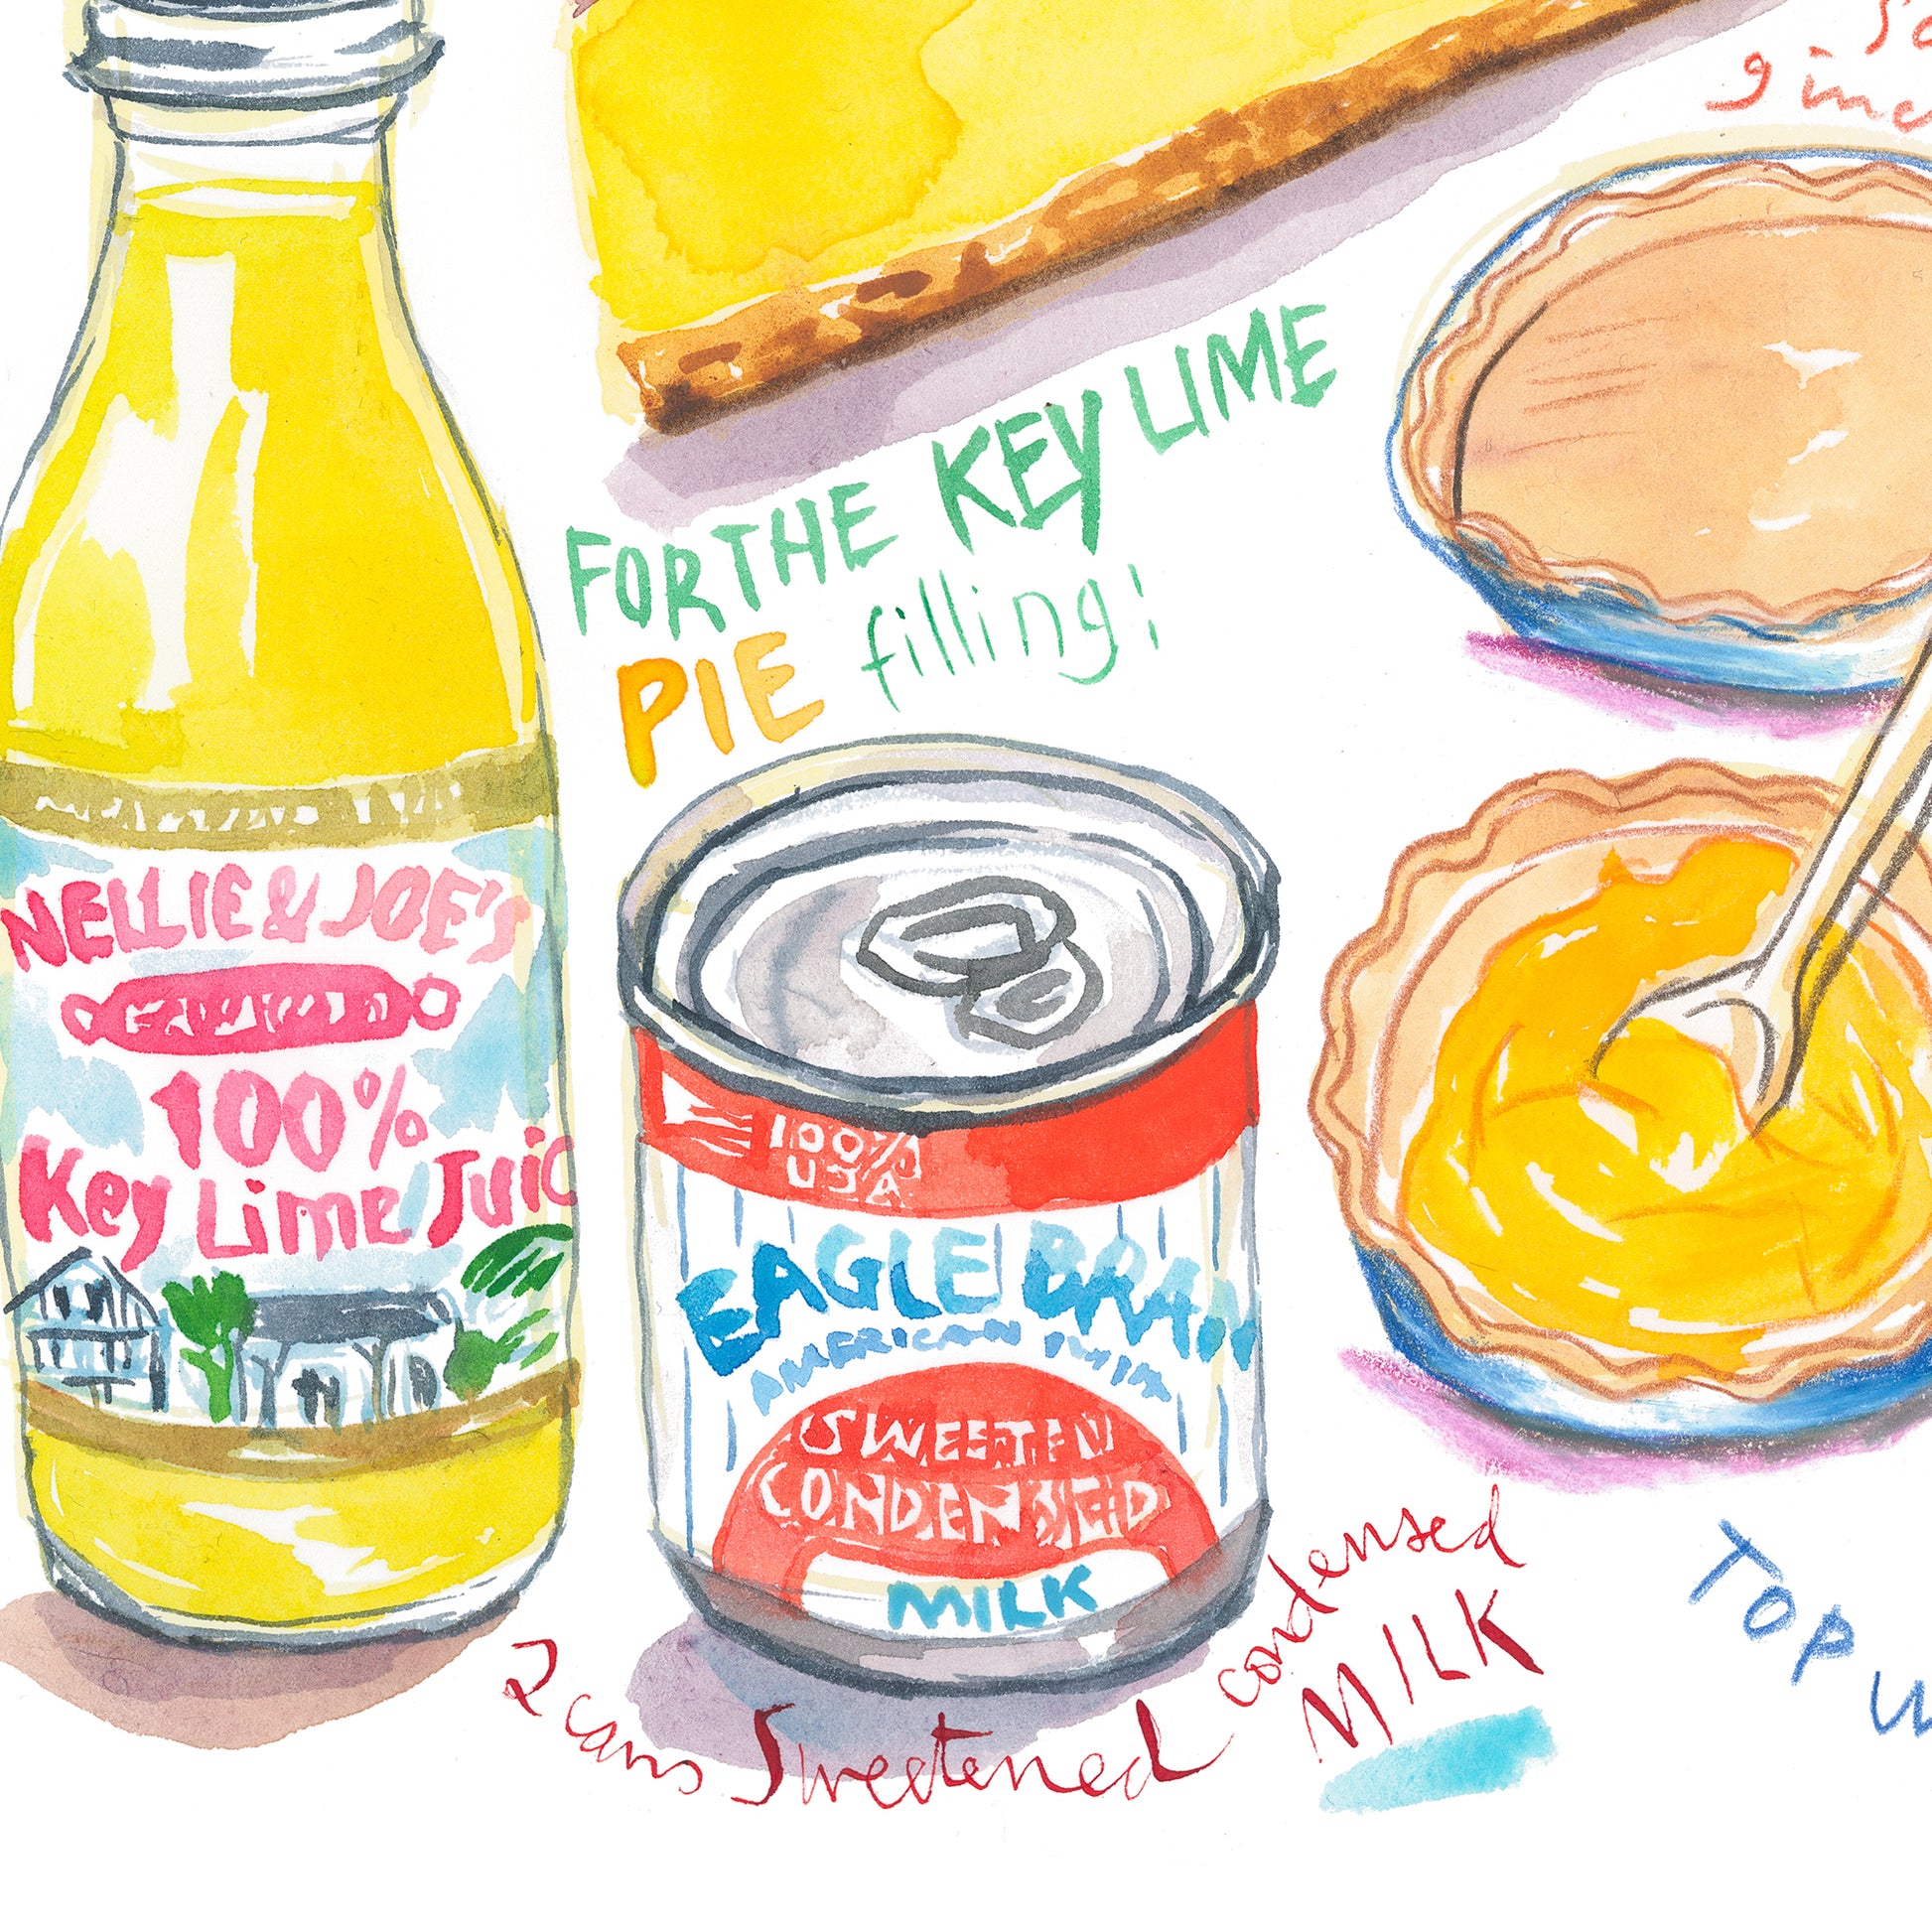 9 inc
FOR THE KEY LIME
PIE filling:
NELLIE & JOE'S
100%
Key Lime Juic
100%
USA
EAGLE BRAN
AMERICAN
SWEETEN
CONDENSED
MILK
2 cans Sweetened condensed
MILK
TOP W